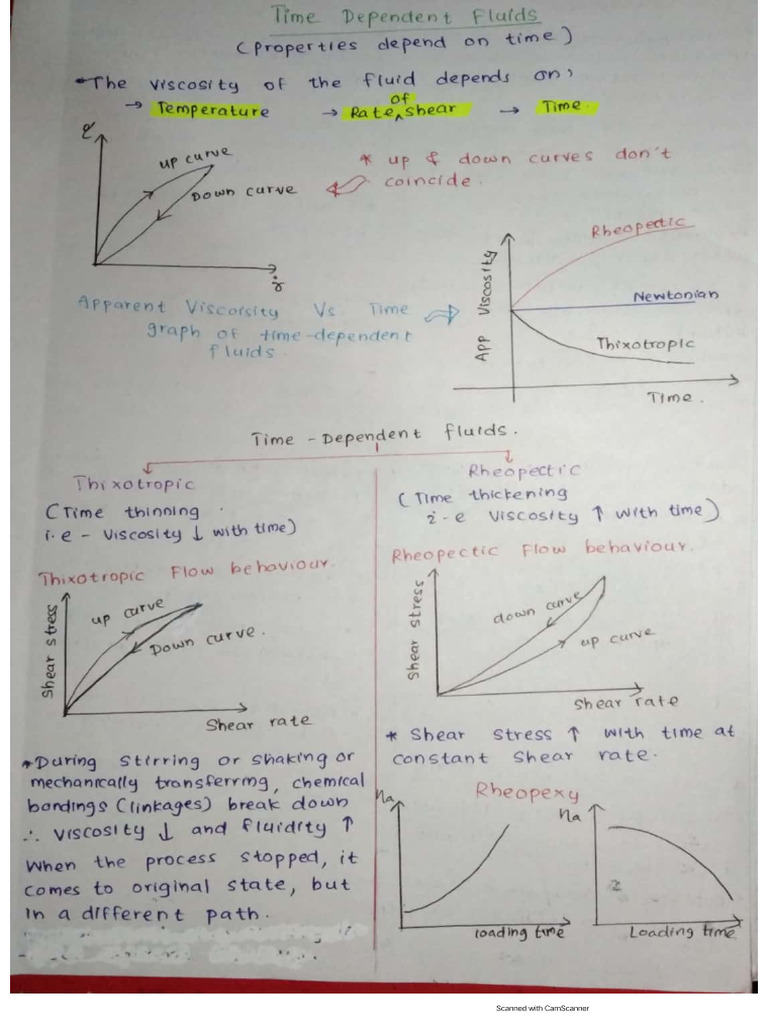 Time Dependent Fluids
(Properties depend on time)
The viscosity of the fluid depends on,
→ Temperature → Rate of shear → Time.
τ
up curve
Down curve
γ̇
* up & down curves don't
coincide.
Apparent Viscorsity Vs Time
graph of time-dependent
fluids.
App Viscosity
Rheopectic
Newtonian
Thixotropic
Time.
Time - Dependent fluids.
Thixotropic
(Time thinning
i.e - viscosity ↓ with time)
Thixotropic Flow behaviour.
Shear stress
up curve
Down curve.
Shear rate
* During stirring or shaking or
mechanically transferring, chemical
bondings (linkages) break down
∴ viscosity ↓ and fluidity ↑
When the process stopped, it
comes to original state, but
in a different path.
Rheopectic
(Time thickening
i-e viscosity ↑ with time)
Rheopectic Flow behaviour.
Shear stress
down curve
up curve
shear rate
* Shear stress ↑ with time at
constant shear rate.
Rheopexy
ηa
loading time
ηa
2
Loading time
Scanned with CamScanner